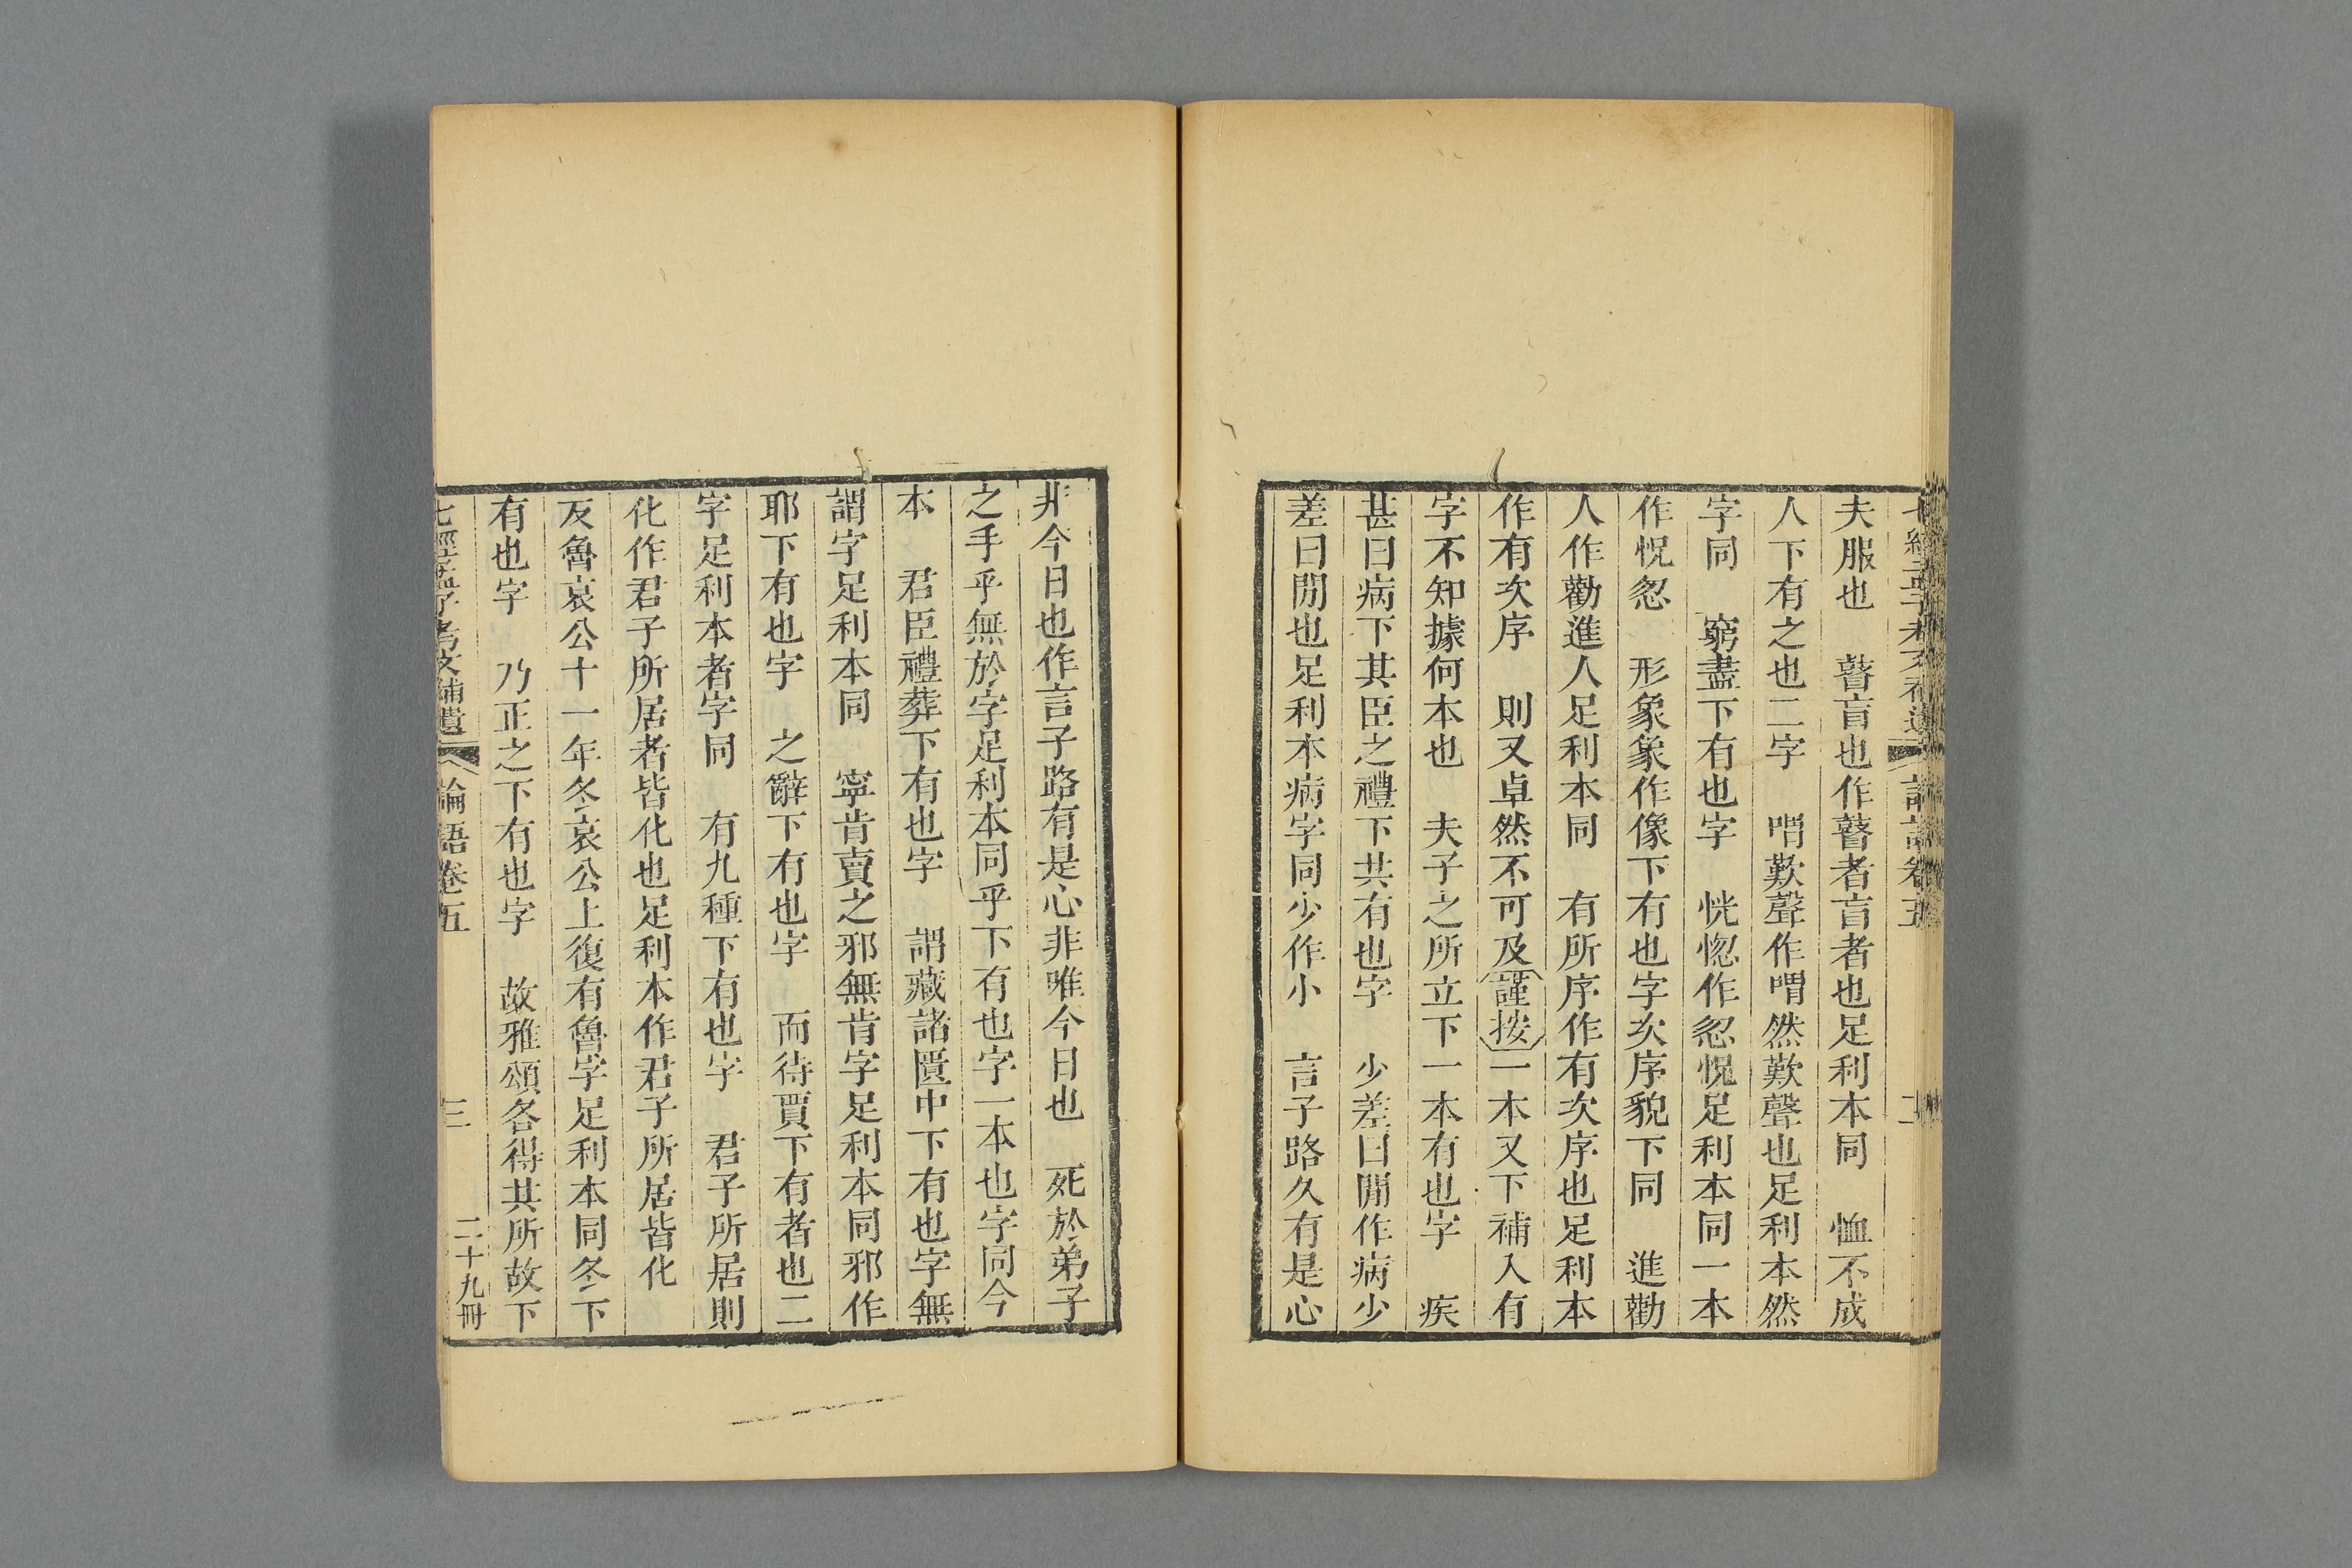 夫服也　瞽盲也作瞽者盲者也足利本同　恤不成
人下有之也二字　喟歎聲作喟然歎聲也足利本然
字同　窮盡下有也字　恍惚作忽怳足利本同一本
作怳忽　形象象作像下有也字次序貌下同　進勸
人作勸進人足利本同　有所序作有次序也足利本
作有次序　則又卓然不可及謹按一本又下補入有
字不知據何本也　夫子之所立下一本有也字　疾
甚曰病下其臣之禮下共有也字　少差曰閒作病少
差曰閒也足利本病字同少作小　言子路久有是心
非今日也作言子路有是心非唯今日也　死於弟子
之手乎無於字足利本同乎下有也字一本也字同今
本　君臣禮葬下有也字　謂藏諸匱中下有也字無
謂字足利本同　寧肯賣之邪無肯字足利本同邪作
耶下有也字　之辭下有也字　而待賈下有者也二
字足利本者字同　有九種下有也字　君子所居則
化作君子所居者皆化也足利本作君子所居皆化
反魯哀公十一年冬哀公上復有魯字足利本同冬下
有也字　乃正之下有也字　故雅頌各得其所故下
七經孟子考文補遺　論語卷五　三　二十九冊